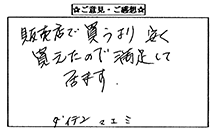 ☆ご意見・ご感想☆
販売店で買うより安く
買えたので満足して
居ます.
ダイテン マエミ